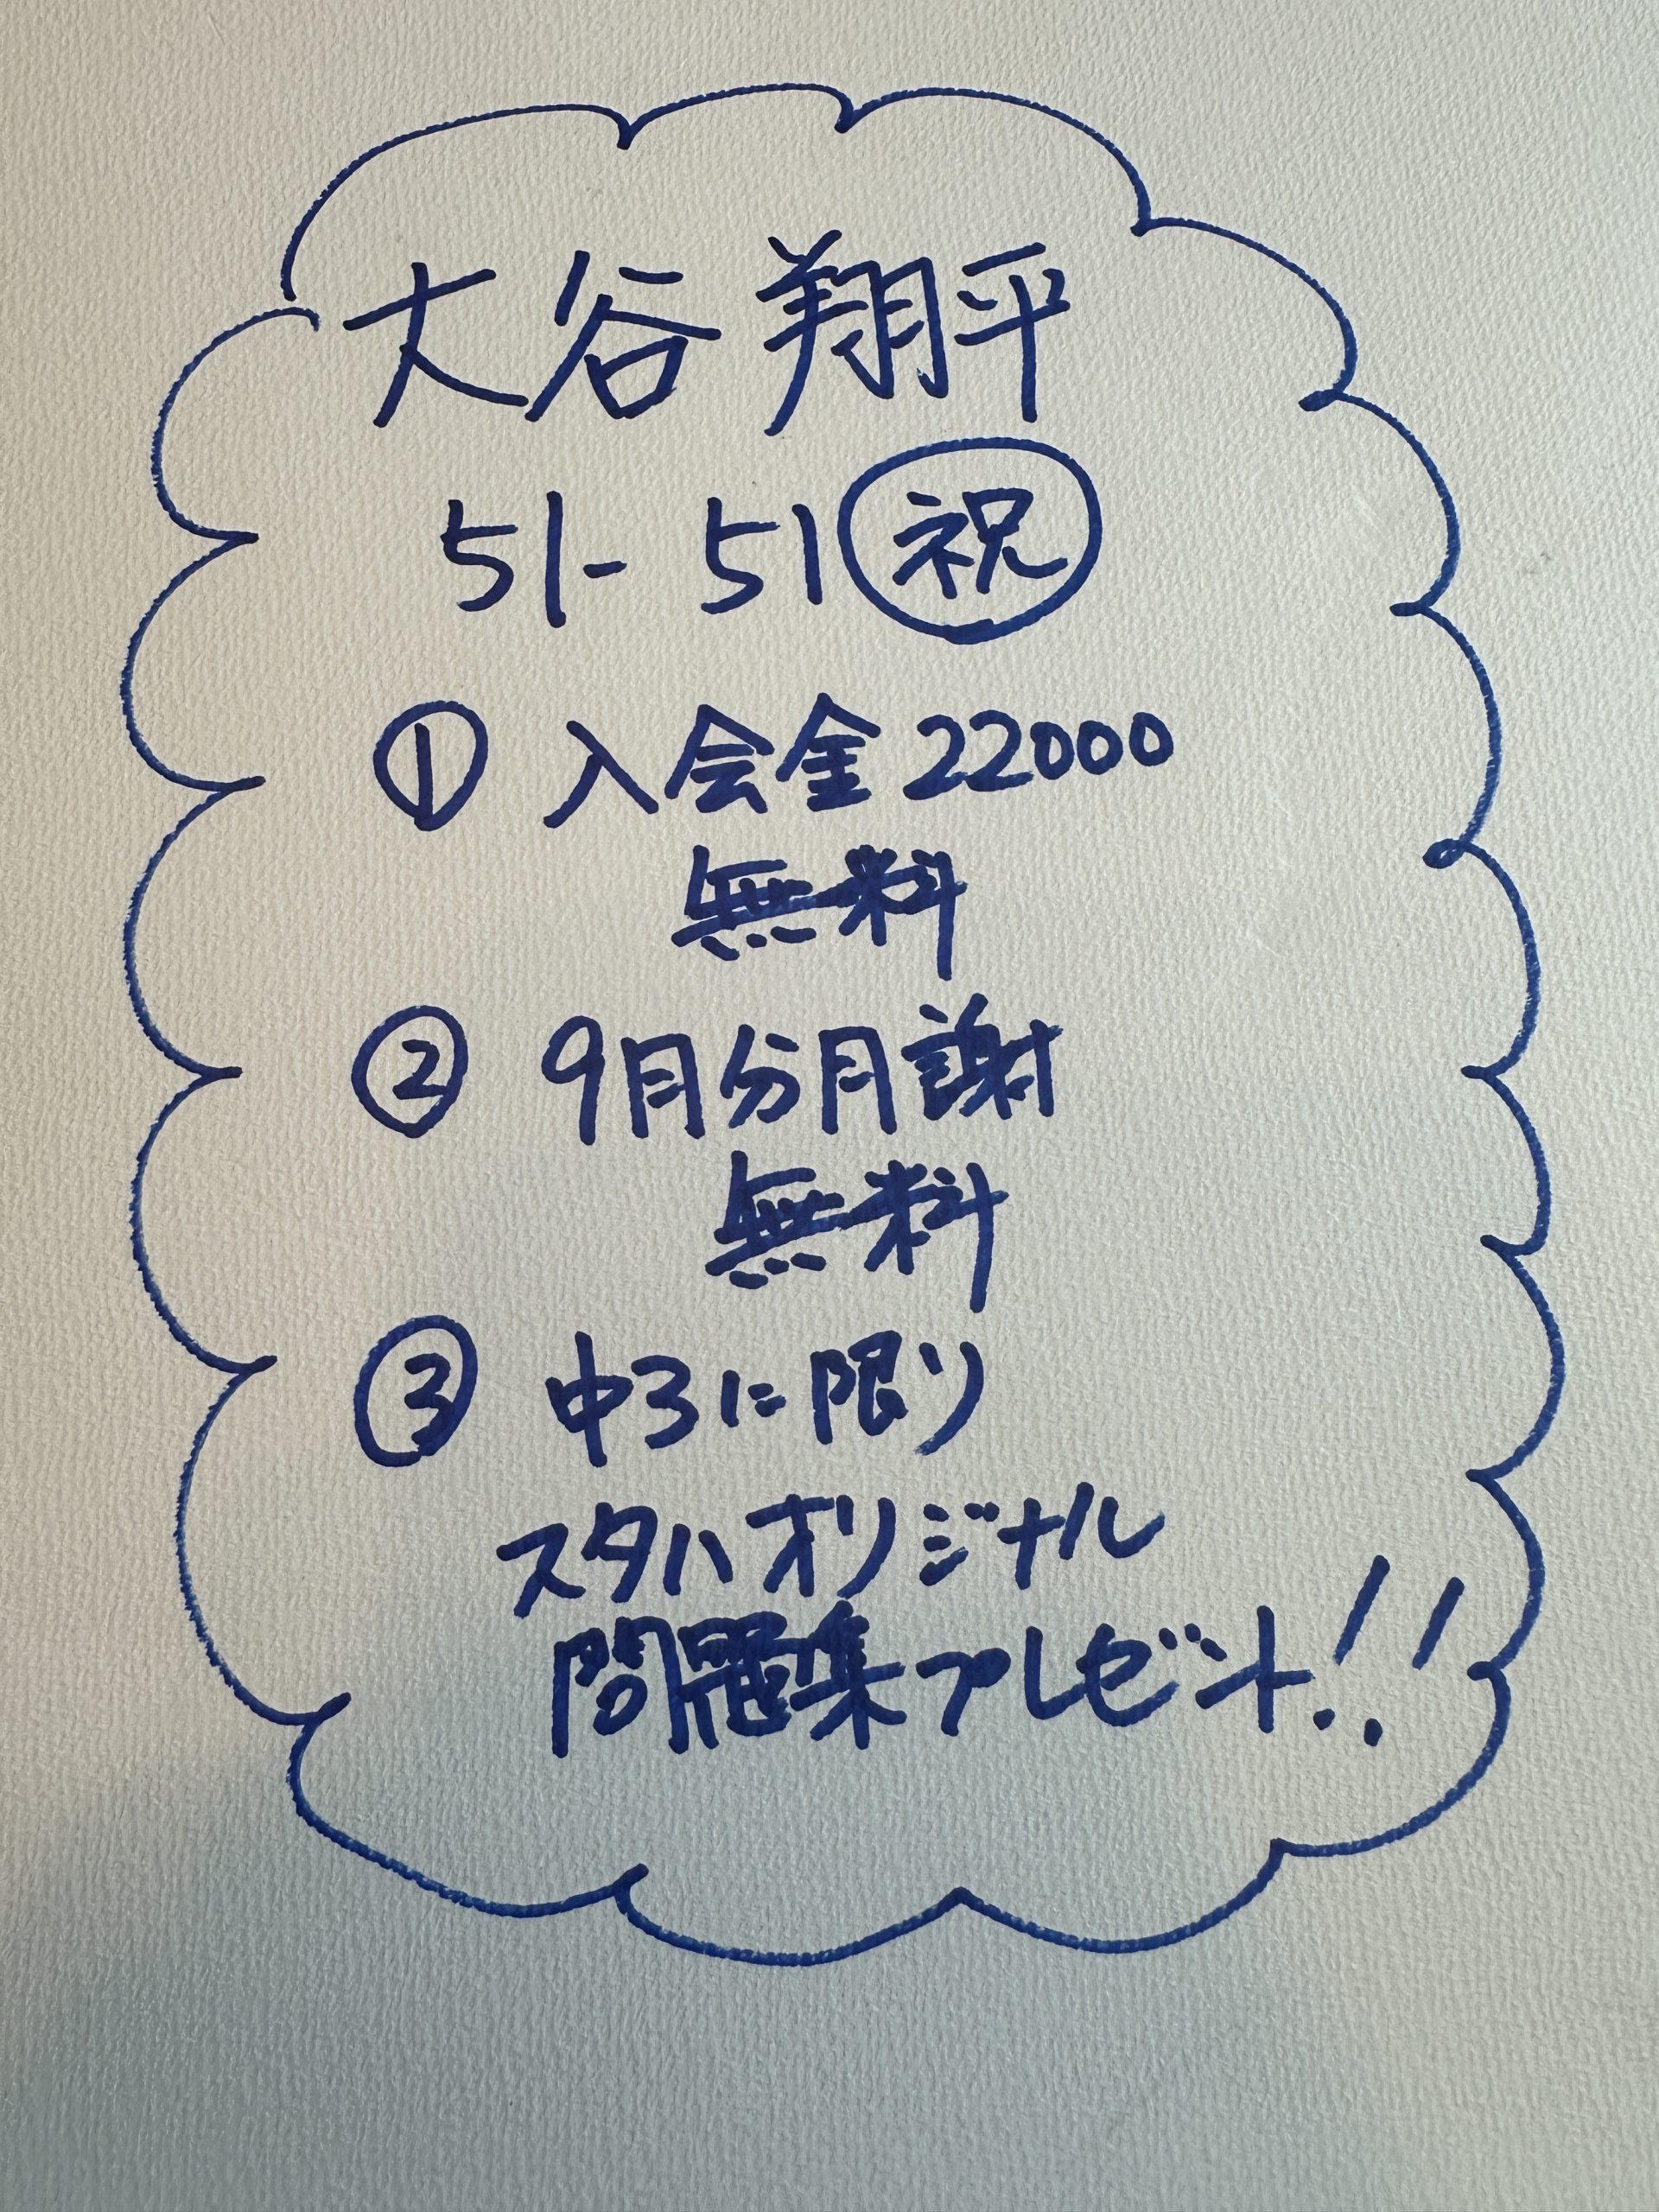 大谷翔平
51-51 祝
① 入会金22000
無料
② 9月分月謝
無料
③ 中3に限り
スタハオリジナル
問題集プレゼント!!